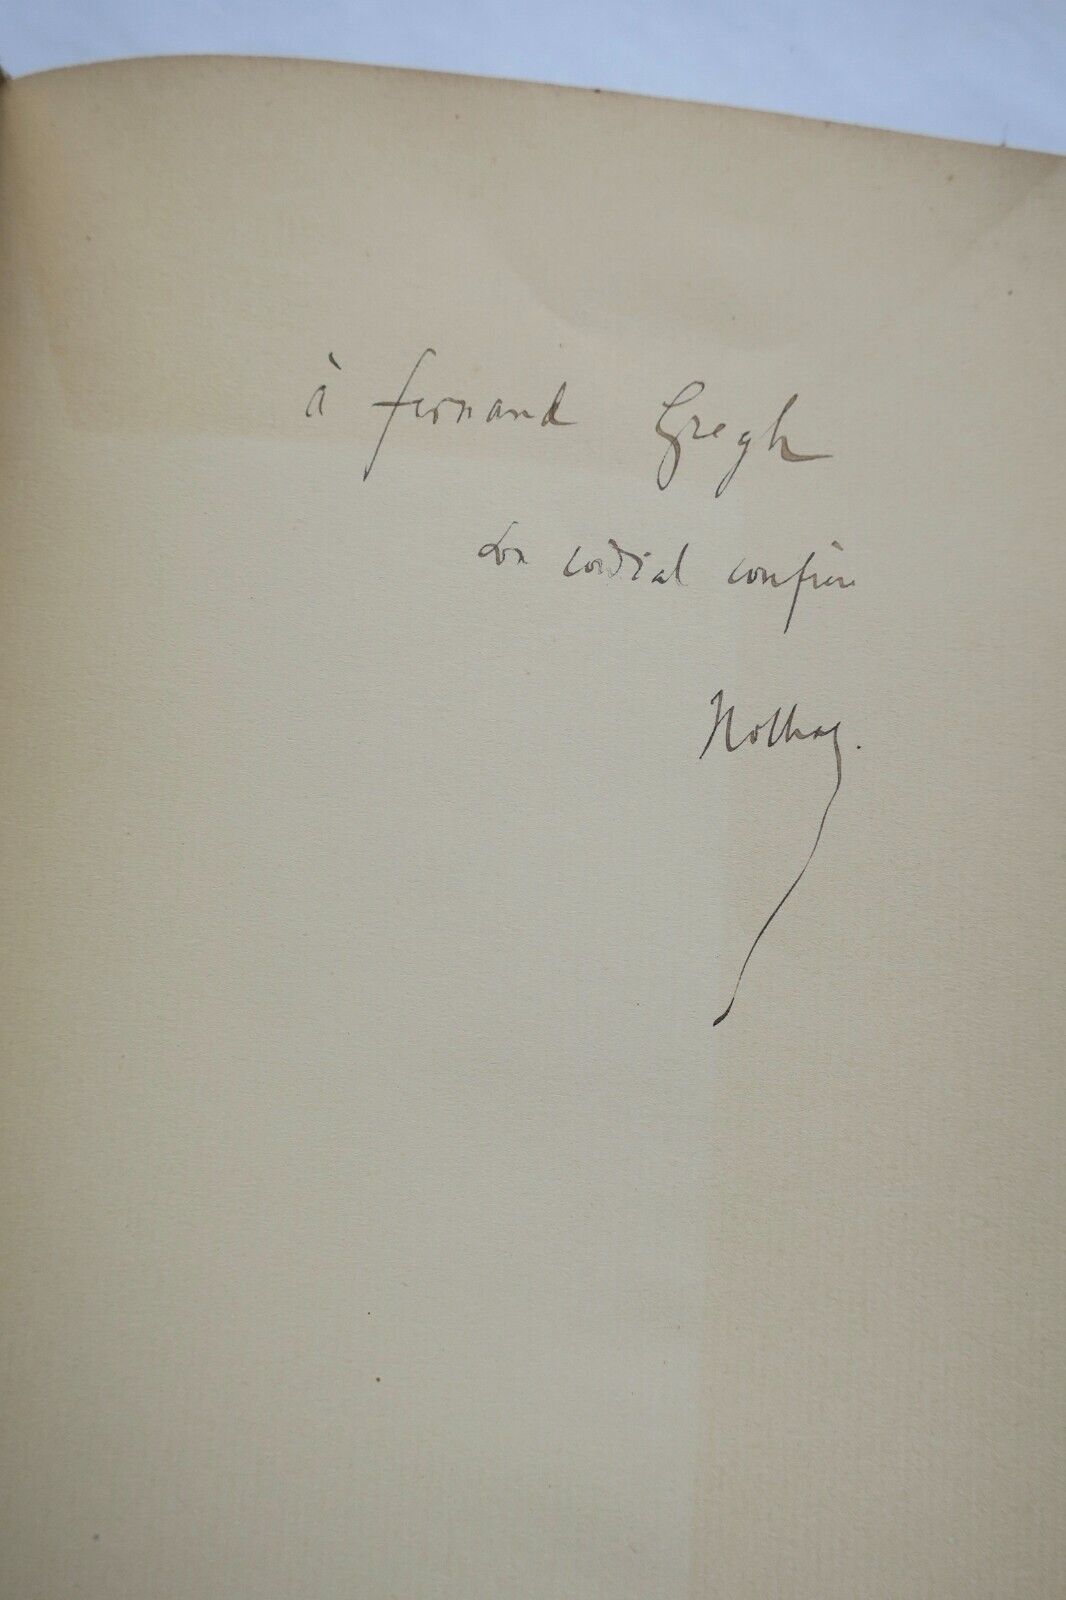 à Fernand Gregh
son cordial confrère
Nolhac.